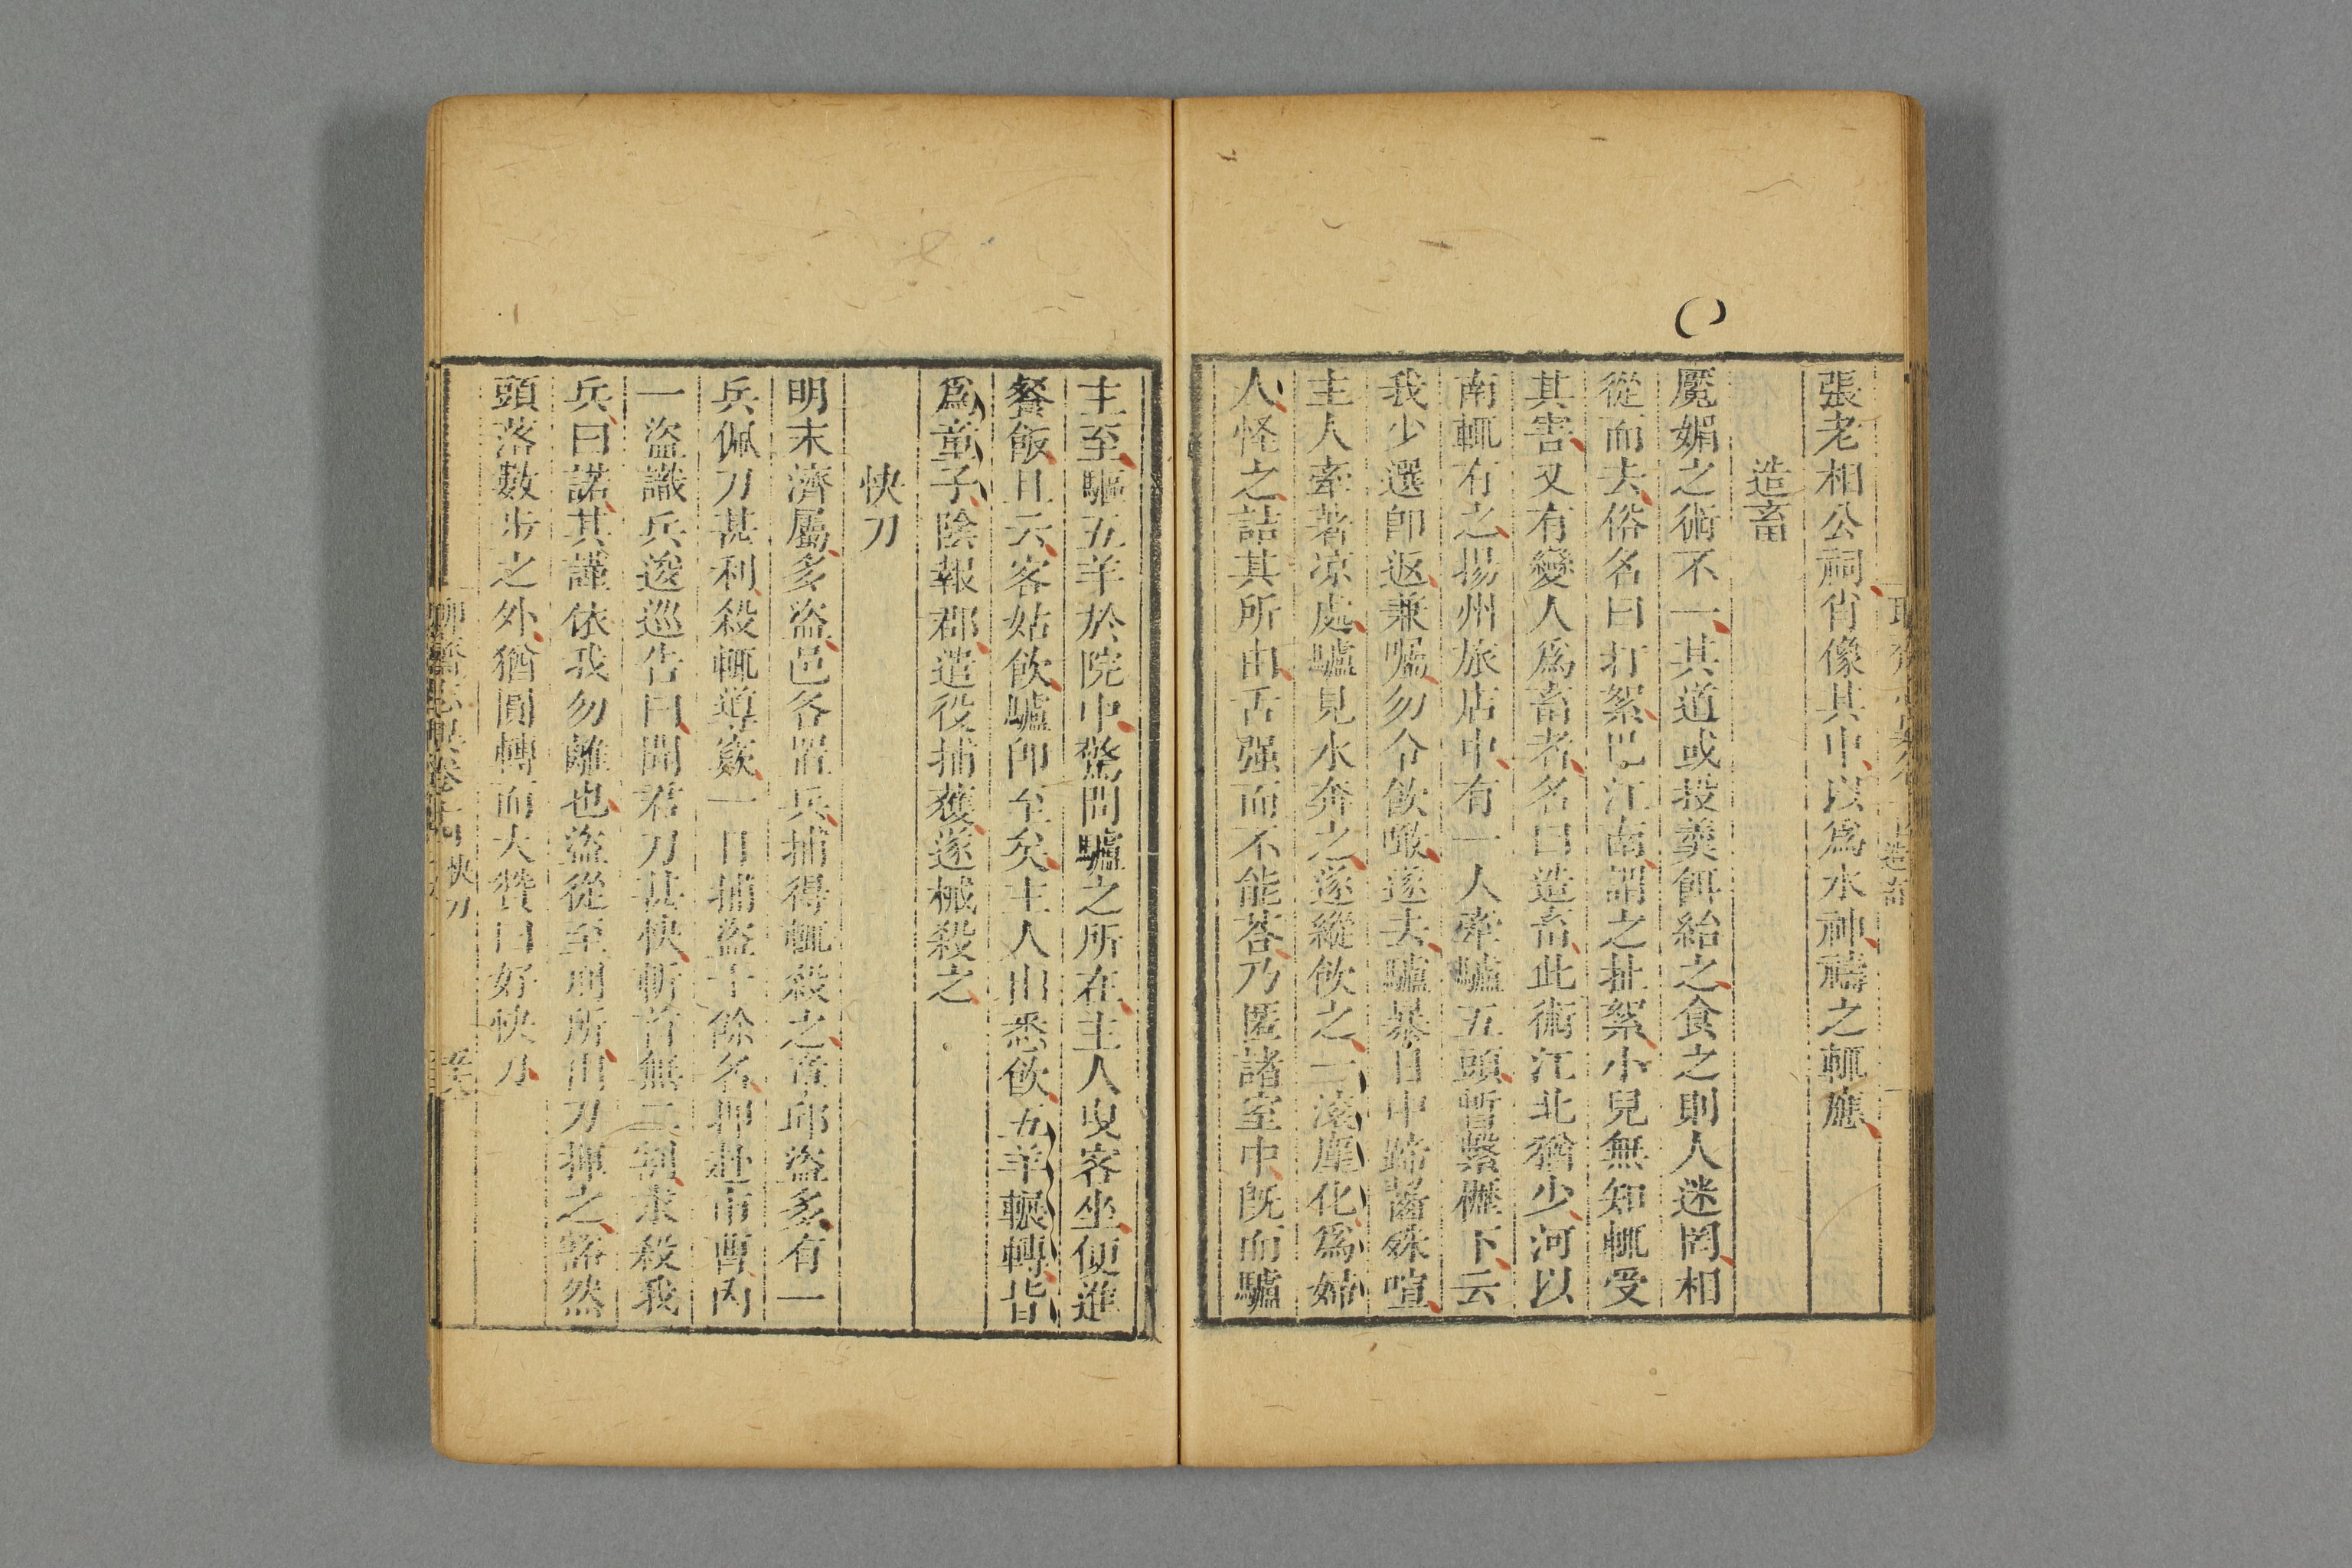 張老相公祠肖像其中以爲水神禱之輒應
造畜
魘媚之術不一其道或投羹餌紿之食之則人迷罔相
從而去俗名曰打絮巴江南謂之扯絮小兒無知輒受
其害又有變人爲畜者名曰造畜此術江北猶少河以
南輒有之揚州旅店中有一人牽驢五頭暫縶櫪下云
我少選卽返兼囑勿令飲噉遂去驢暴日中蹄齧殊喧
主人牽著凉處驢見水奔之遂縱飲之一滚塵化爲婦
人怪之詰其所由舌强而不能荅乃匿諸室中旣而驢
主至驅五羊於院中驚問驢之所在主人曳客坐便進
餐飯且云客姑飲驢卽至矣主人出悉飲五羊輾轉皆
爲童子陰報郡遣役捕獲遂械殺之
快刀
明末濟屬多盜邑各置兵捕得輒殺之章邱盜多有一
兵佩刀甚利殺輒導窾一日捕盜十餘名押赴市曹內
一盜識兵逡巡告曰聞君刀甚快斬首無二割求殺我
兵曰諾其謹依我勿離也盜從至刑所出刀揮之豁然
頭落數步之外猶圓轉而大贊曰好快刀
快刀